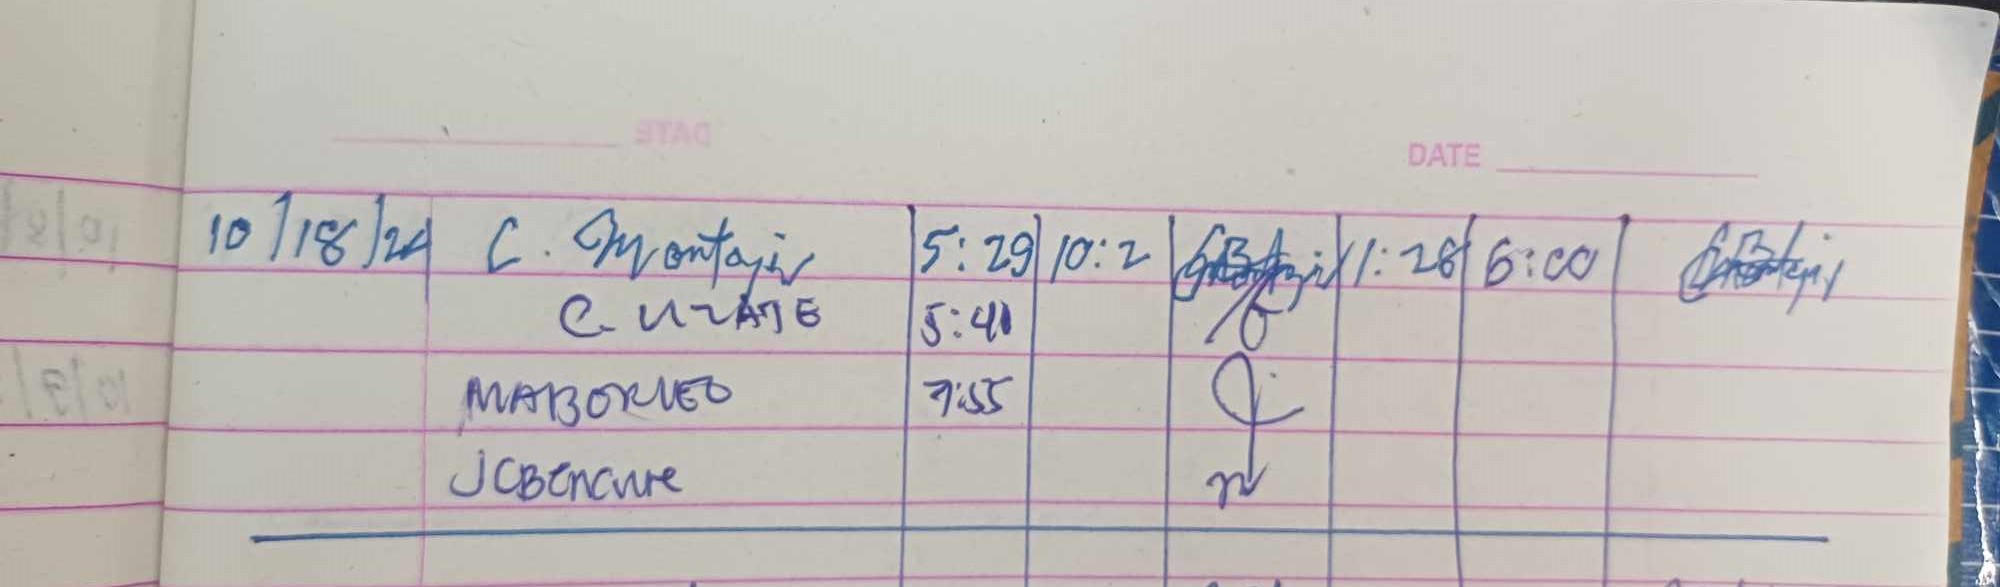 DATE
10/18/24 C. Montajir 5:29 10:2 1:28 6:00
C. UZATE 5:41
MABORNEO 7:55
JCBencure